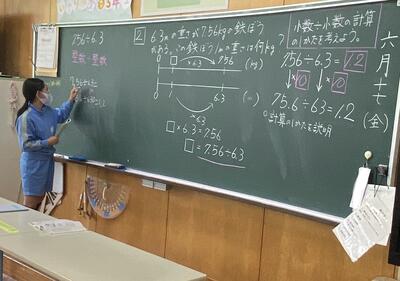 7.56÷6.3
整数÷整数
7.56÷6.3=
2 6.3mの重さが7.56kgの鉄ぼうが
ある。この鉄ぼう1mの重さは何kg?
×6.3
7.56 (kg)
6.3
×6.3
□×6.3=7.56
□=7.56÷6.3
小数÷小数の計算
のしかたを考えよう。
7.56÷6.3=1.2
×10 ×10
75.6÷63=1.2
○計算のしかたを説明
六月十七(金)